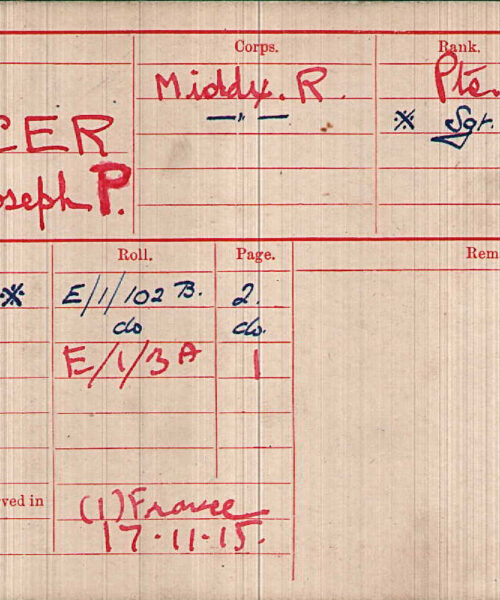 Corps. Rank.
Middx. R. Pte.
CER — " — ※ Sgt.
oseph P.
Roll. Page. Rem
※ E/1/102 B. 2.
do do.
E/1/3 A 1
ved in (1) France
17-11-15.